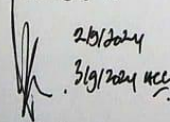 2/9/2024
3/9/2024 HCC